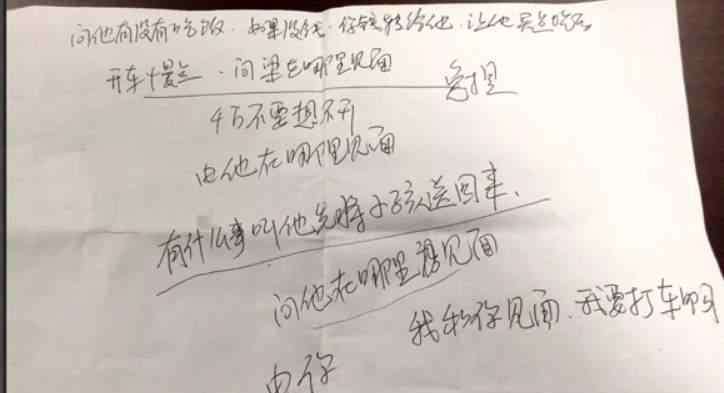 问他有没有吃饭.如果没钱.你钱转给他.让他买点吃的
开车慢点.问梁在哪里见面
千万不要想不开
由他在哪里见面
有什么事叫他先将小孩送回来、
问他在哪里想见面
我和你见面.我要打车吗
由你